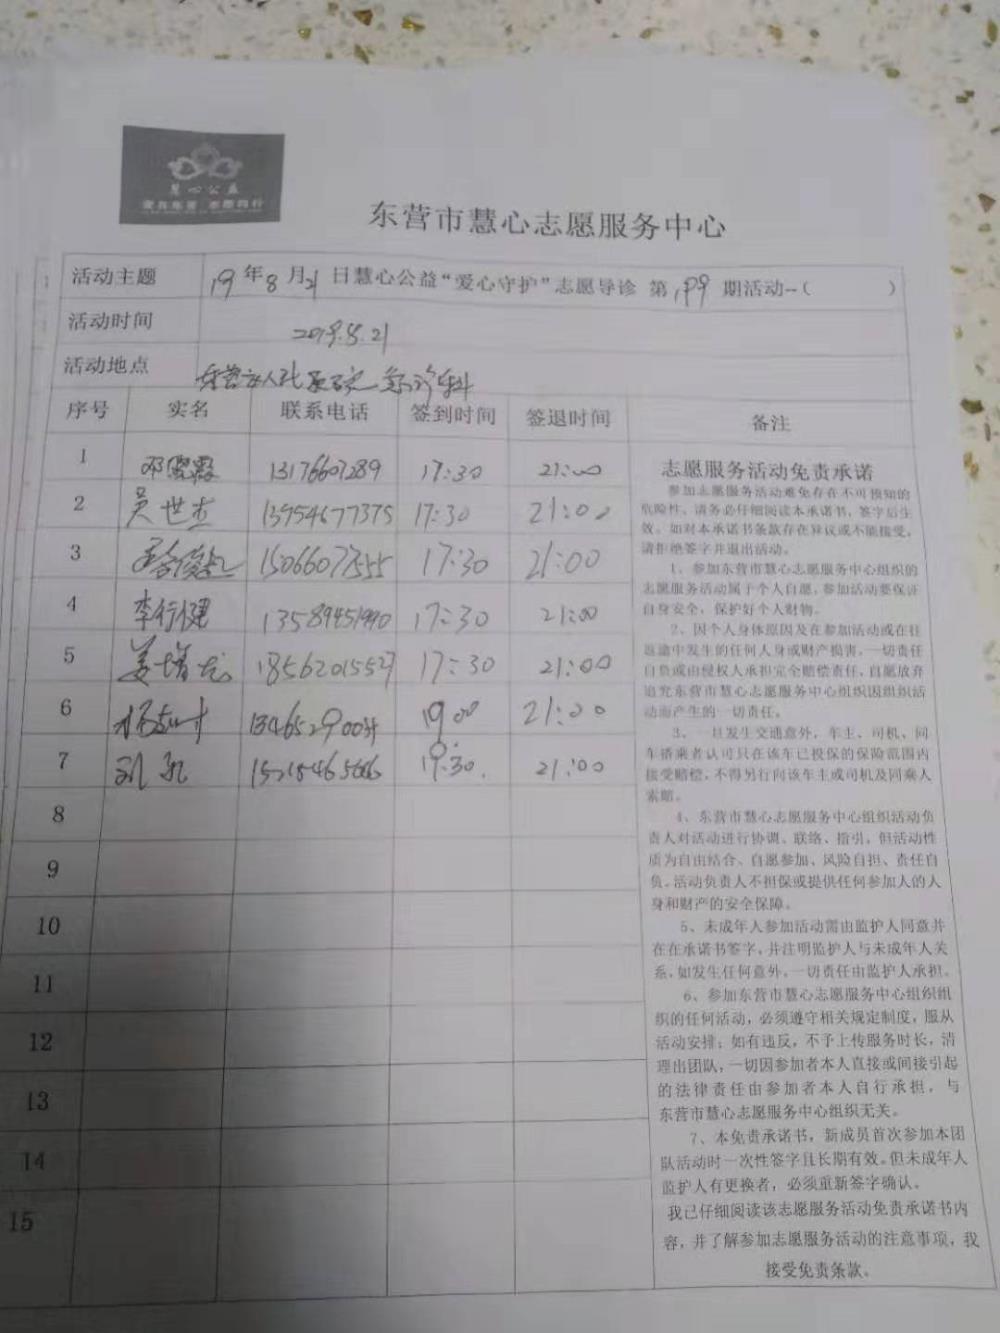 慧心公益
东营市慧心志愿服务中心
活动主题 19年8月21日慧心公益“爱心守护”志愿导诊 第199期活动--( )
活动时间 2019.8.21
活动地点 急诊科
序号 实名 联系电话 签到时间 签退时间 备注
1 13176607289 17:30 21:00
2 吴世杰 13954677375 17:30 21:00
3 15066077555 17:30 21:00
4 李行健 17:30 21:00
5 姜增龙 18562015527 17:30 21:00
6 19:00 21:00
7 21:00
8
9
10
11
12
13
14
15
志愿服务活动免责承诺
参加志愿服务活动难免存在不可预知的
危险性，请务必仔细阅读本承诺书，签字后生
效。如对本承诺书条款存在异议或不能接受，
请拒绝签字并退出活动。
1、参加东营市慧心志愿服务中心组织的
志愿服务活动属于个人自愿，参加活动要保证
自身安全，保护好个人财物。
2、因个人身体原因及在参加活动或在往
返途中发生的任何人身或财产损害，一切责任
自负或由侵权人承担完全赔偿责任，自愿放弃
追究东营市慧心志愿服务中心组织因组织活
动而产生的一切责任。
3、一旦发生交通意外，车主、司机、同
车搭乘者认可只在该车已投保的保险范围内
接受赔偿，不得另行向该车主或司机及同乘人
索赔。
4、东营市慧心志愿服务中心组织活动负
责人对活动进行协调、联络、指引，但活动性
质为自由结合、自愿参加、风险自担、责任自
负。活动负责人不担保或提供任何参加人的人
身和财产的安全保障。
5、未成年人参加活动需由监护人同意并
在在承诺书签字，并注明监护人与未成年人关
系，如发生任何意外，一切责任由监护人承担。
6、参加东营市慧心志愿服务中心组织组
织的任何活动，必须遵守相关规定制度，服从
活动安排；如有违反，不予上传服务时长，清
理出团队，一切因参加者本人直接或间接引起
的法律责任由参加者本人自行承担，与
东营市慧心志愿服务中心组织无关。
7、本免责承诺书，新成员首次参加本团
队活动时一次性签字且长期有效。但未成年人
监护人有更换者，必须重新签字确认。
我已仔细阅读该志愿服务活动免责承诺书内
容，并了解参加志愿服务活动的注意事项，我
接受免责条款。